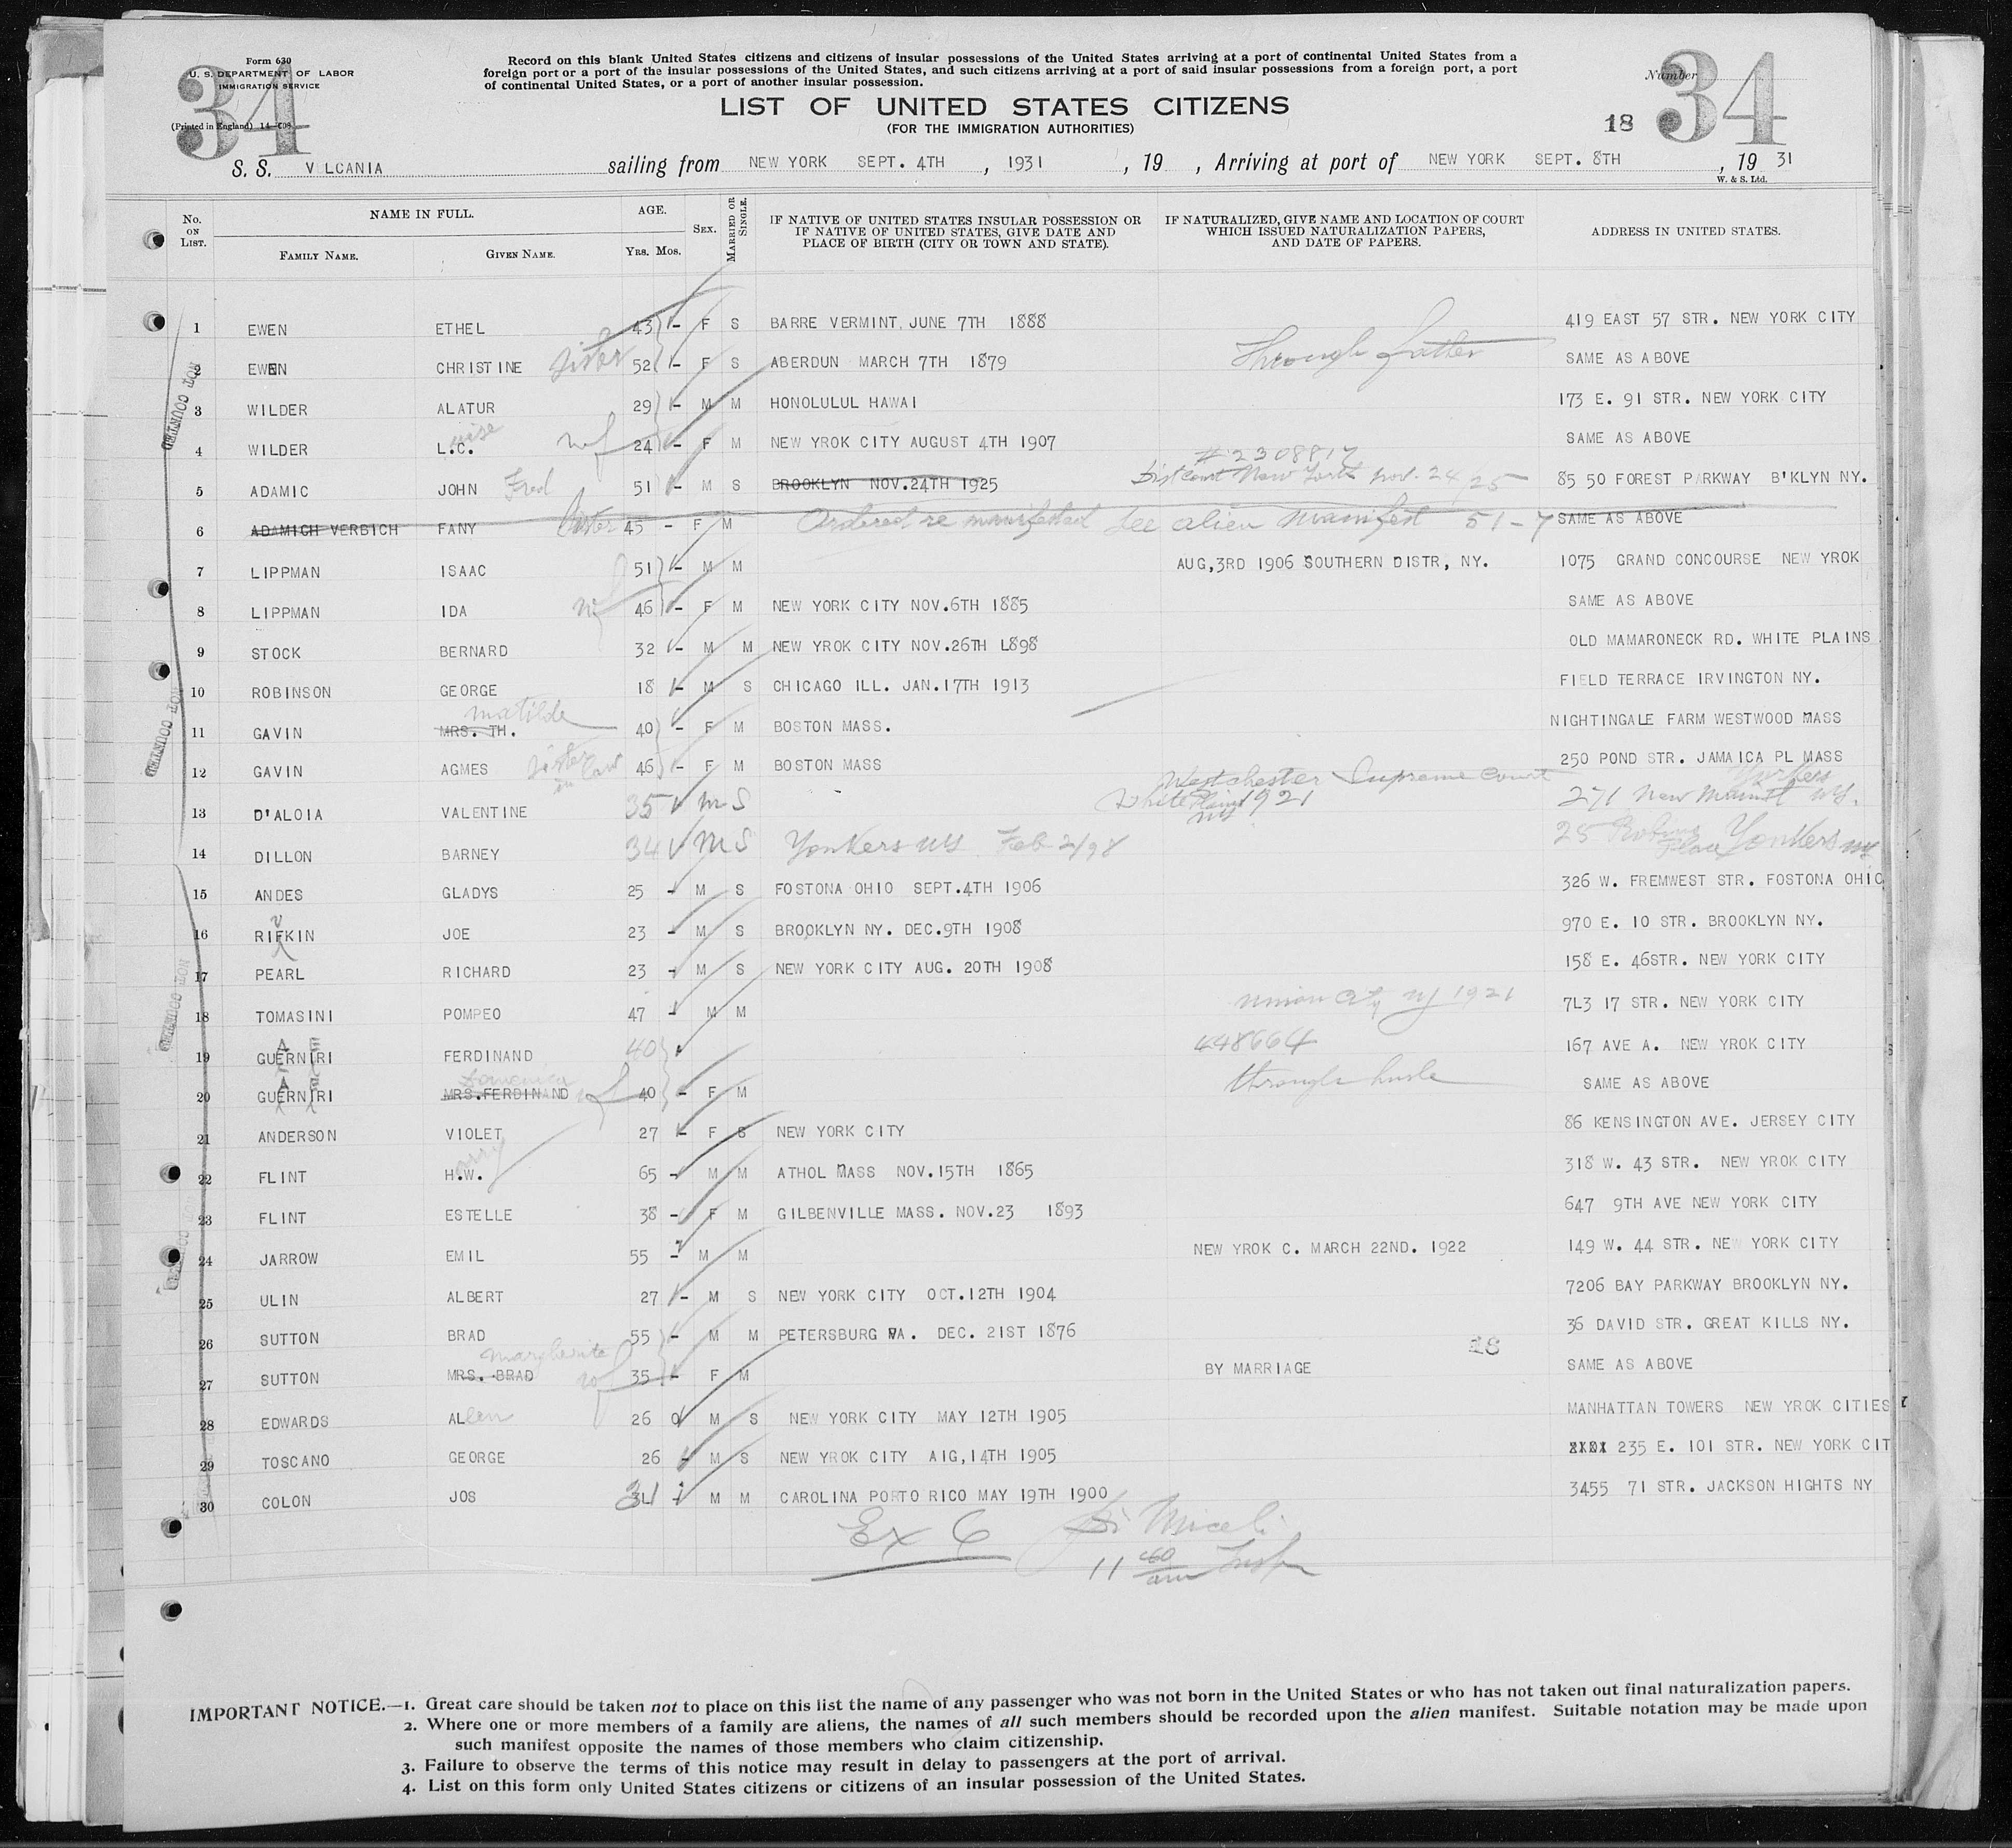 Form 630
U. S. DEPARTMENT OF LABOR
IMMIGRATION SERVICE
(Printed in England)
34
Record on this blank United States citizens and citizens of insular possessions of the United States arriving at a port of continental United States from a
foreign port or a port of the insular possessions of the United States, and such citizens arriving at a port of said insular possessions from a foreign port, a port
of continental United States, or a port of another insular possession.
LIST OF UNITED STATES CITIZENS
(FOR THE IMMIGRATION AUTHORITIES)
Number 34
18
S. S. VULCANIA sailing from NEW YORK SEPT. 4TH , 1931 , 19 , Arriving at port of NEW YORK SEPT. 8TH , 19 31
W. & S. Ltd.
No. ON LIST. NAME IN FULL. AGE. SEX. MARRIED OR SINGLE. IF NATIVE OF UNITED STATES INSULAR POSSESSION OR IF NATIVE OF UNITED STATES, GIVE DATE AND PLACE OF BIRTH (CITY OR TOWN AND STATE). IF NATURALIZED, GIVE NAME AND LOCATION OF COURT WHICH ISSUED NATURALIZATION PAPERS, AND DATE OF PAPERS. ADDRESS IN UNITED STATES.
FAMILY NAME. GIVEN NAME. YRS. MOS.
1 EWEN ETHEL 43 - F S BARRE VERMINT, JUNE 7TH 1888 419 EAST 57 STR. NEW YORK CITY
2 EWEN CHRISTINE sister 52 - F S ABERDUN MARCH 7TH 1879 Through father SAME AS ABOVE
3 WILDER ALATUR 29 - M M HONOLULUL HAWAI 173 E. 91 STR. NEW YORK CITY
4 WILDER L.C. wf 24 - F M NEW YROK CITY AUGUST 4TH 1907 SAME AS ABOVE
5 ADAMIC JOHN Fred 51 - M S BROOKLYN NOV.24TH 1925 #2308817 Dist Court New York Nov. 24/25 85 50 FOREST PARKWAY B'KLYN NY.
6 ADAMICH VERBICH FANY sister 45 - F M Ordered re manifested see alien manifest 51-7 SAME AS ABOVE
7 LIPPMAN ISAAC 51 - M M AUG,3RD 1906 SOUTHERN DISTR, NY. 1075 GRAND CONCOURSE NEW YROK
8 LIPPMAN IDA wf 46 - F M NEW YORK CITY NOV.6TH 1885 SAME AS ABOVE
9 STOCK BERNARD 32 - M M NEW YROK CITY NOV.26TH L898 OLD MAMARONECK RD. WHITE PLAINS
10 ROBINSON GEORGE 18 - M S CHICAGO ILL. JAN.17TH 1913 FIELD TERRACE IRVINGTON NY.
11 GAVIN MRS. TH. Matilde 40 - F M BOSTON MASS. NIGHTINGALE FARM WESTWOOD MASS
12 GAVIN AGMES sister in law 46 - F M BOSTON MASS 250 POND STR. JAMAICA PL MASS
13 D'ALOIA VALENTINE 35 M S Westchester Supreme Court White Plains NY 1921 271 New Main St Yonkers NY.
14 DILLON BARNEY 34 M S Yonkers NY Feb 2/98 25 Robins Place Yonkers NY
15 ANDES GLADYS 25 - M S FOSTONA OHIO SEPT.4TH 1906 326 W. FREMWEST STR. FOSTONA OHIO
16 RIFKIN JOE 23 - M S BROOKLYN NY. DEC.9TH 1908 970 E. 10 STR. BROOKLYN NY.
17 PEARL RICHARD 23 - M S NEW YORK CITY AUG. 20TH 1908 158 E. 46STR. NEW YORK CITY
18 TOMASINI POMPEO 47 - M M Union City NJ 1921 7L3 17 STR. NEW YORK CITY
19 GUERNIRI FERDINAND 40 448664 167 AVE A. NEW YROK CITY
20 GUERNIRI MRS.FERDINAND Domenica wf 40 - F M through husb SAME AS ABOVE
21 ANDERSON VIOLET 27 - F S NEW YORK CITY 86 KENSINGTON AVE. JERSEY CITY
22 FLINT H.W. 65 - M M ATHOL MASS NOV.15TH 1865 318 W. 43 STR. NEW YROK CITY
23 FLINT ESTELLE 38 - F M GILBENVILLE MASS. NOV.23 1893 647 9TH AVE NEW YORK CITY
24 JARROW EMIL 55 - M M NEW YROK C. MARCH 22ND. 1922 149 W. 44 STR. NEW YORK CITY
25 ULIN ALBERT 27 - M S NEW YORK CITY OCT.12TH 1904 7206 BAY PARKWAY BROOKLYN NY.
26 SUTTON BRAD 55 - M M PETERSBURG VA. DEC. 21ST 1876 36 DAVID STR. GREAT KILLS NY.
18
27 SUTTON MRS. BRAD Margherite wf 35 - F M BY MARRIAGE SAME AS ABOVE
28 EDWARDS ALlen 26 M S NEW YORK CITY MAY 12TH 1905 MANHATTAN TOWERS NEW YROK CITIES
29 TOSCANO GEORGE 26 - M S NEW YROK CITY AIG,14TH 1905 XXXX 235 E. 101 STR. NEW YORK CIT
30 COLON JOS 31 M M CAROLINA PORTO RICO MAY 19TH 1900 3455 71 STR. JACKSON HIGHTS NY
NOT COUNTED
NOT COUNTED
NOT COUNTED
Ex 6 Miceli
11 40 am Insp
IMPORTANT NOTICE.—1. Great care should be taken not to place on this list the name of any passenger who was not born in the United States or who has not taken out final naturalization papers.
2. Where one or more members of a family are aliens, the names of all such members should be recorded upon the alien manifest. Suitable notation may be made upon
such manifest opposite the names of those members who claim citizenship.
3. Failure to observe the terms of this notice may result in delay to passengers at the port of arrival.
4. List on this form only United States citizens or citizens of an insular possession of the United States.